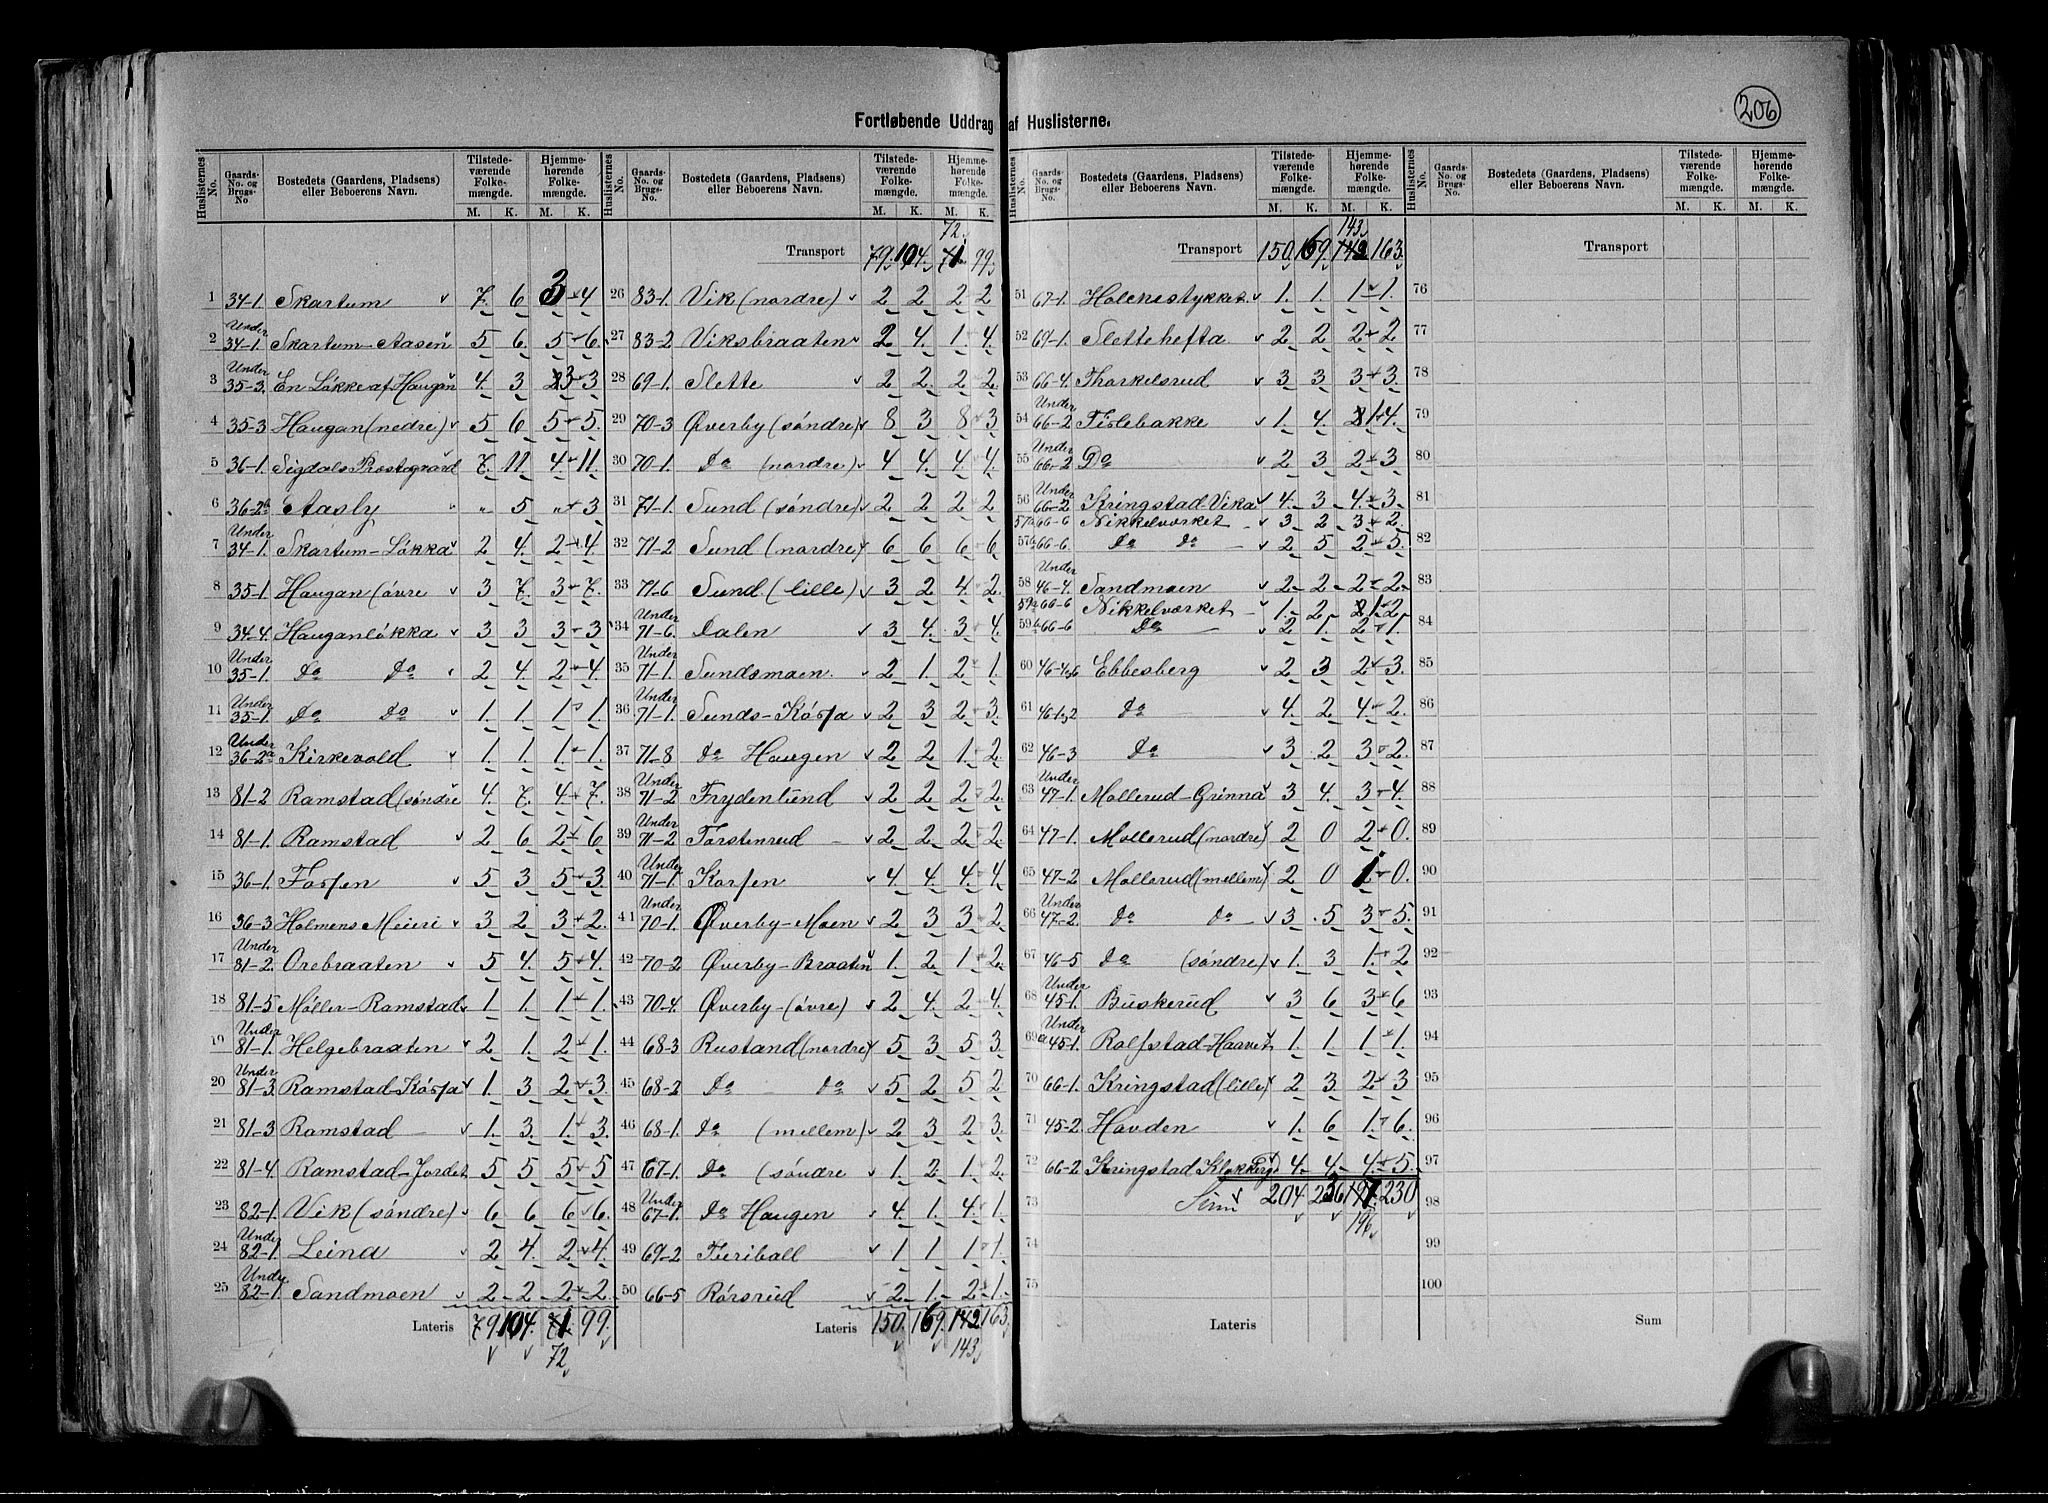 206
Fortløbende Uddrag af Huslisterne.
Huslisternes No. | Gaards-No. og Brugs-No | Bostedets (Gaardens, Pladsens) eller Beboerens Navn. | Tilstedeværende Folkemængde. M. K. | Hjemmehørende Folkemængde. M. K.
1 34-1. Skartum 7 6 3 4
2 Under 34-1. Skartum-Aasen 5 6 5 6
3 Under 35-3. En Løkke af Haugan 4 3 3 3
4 35-3 Haugan (nedre) 5 6 5 5
5 36-1. Sigdals Præstegaard 7 11 4 11
6 36-2b Aasly " 5 " 3
7 Under 34-1. Skartum-Løkka 2 4 2 4
8 35-1 Haugan (øvre 3 7 3 7
9 34-4. Hauganløkka 3 3 3 3
10 Under 35-1. Do Do 2 4 2 4
11 Under 35-1. Do Do 1 1 1 1
12 Under 36-2a Kirkevold 1 1 1 1
13 81-2 Ramstad (søndre 4 7 4 7
14 81-1. Ramstad 2 6 2 6
15 36-1. Fossen 5 3 5 3
16 36-3 Holmens Meieri 3 2 3 2
17 Under 81-2. Orebraaten 5 4 5 4
18 81-5 Møller-Ramstad 1 1 1 1
19 Under 81-1. Helgebraaten 2 1 2 1
20 Under 81-3. Ramstad-Kørsa 1 3 2 3
21 81-3 Ramstad 1 3 1 3
22 81-4. Ramstad-Jordet 5 5 5 5
23 82-1. Vik (søndre) 6 6 6 6
24 Under 82-1. Leina 2 4 2 4
25 Under 82-1. Sandmoen 2 2 2 2
Lateris 79 104 71 99
72
Transport 79 104 71 99
72
26 83-1. Vik (nordre) 2 2 2 2
27 83-2 Viksbraaten 2 4 1 4
28 69-1. Slette 2 2 2 2
29 70-3 Øverby (søndre) 8 3 8 3
30 70-1. Do (nordre) 4 4 4 4
31 71-1. Sund (søndre) 2 2 2 2
32 71-2 Sund (nordre) 6 6 6 6
33 71-6 Sund (lille) 3 2 4 2
34 Under 71-6. Dalen 3 4 3 4
35 Under 71-1. Sundsmoen 2 1 2 1
36 Under 71-1. Sunds-Kørsa 2 3 2 3
37 71-8 Do Haugen 2 2 1 2
38 Under 71-2 Frydenlund 2 2 2 2
39 Under 71-2 Torstenrud 2 2 2 2
40 Under 71-1. Korsen 4 4 4 4
41 Under 70-1. Øverby-Moen 2 3 3 2
42 70-2 Øverby-Braaten 1 2 1 2
43 70-4. Øverby-(øvre) 2 4 2 4
44 68-3 Rustand (nordre) 5 3 5 3
45 68-2 Do Do 5 2 5 2
46 68-1. Do (mellem) 2 3 2 3
47 67-1. Do (søndre 1 2 1 2
48 Under 67-1. Do Haugen 4 1 4 1
49 69-2 Fieriball 1 1 1 1
50 66-5 Rørsrud 2 1 2 1
Lateris 150 169 142 163
143
Transport 150 169 142 163
143
51 67-1. Holenestykket 1 1 1 1
52 69-1. Slettehefta 2 2 2 2
53 66-4. Thorkelsrud 3 3 3 3
54 Under 66-2 Fislebakke 1 4 1 4
55 Under 66-2 Do 2 3 2 3
56 Under 66-2 Kringstad-Vika 4 3 4 3
57a 66-6 Nikkelværket 3 2 3 2
57b 66-6. Do Do 2 5 2 5
58 Under 46-4. Sandmoen 2 2 2 2
59a 66-6 Nikkelværket 1 2 1 2
59b 66-6 Do 2 1 2 1
60 46-4,6 Ebbesberg 2 3 2 3
61 46-1,2 Do 4 2 4 2
62 46-3 Do 3 2 3 2
63 Under 47-1. Mollerud-Grinna 3 4 3 4
64 47-1. Mollerud (nordre) 2 0 2 0
65 47-2 Mollerud (mellem) 2 0 1 0
66 Under 47-2. Do Do 3 5 3 5
67 46-5 Do (søndre) 1 3 1 2
68 Under 45-1. Buskerud 3 6 3 6
69 Under 45-1. Rolfstad-Haavet 1 1 1 1
70 66-1. Kringstad (lille) 2 3 2 3
71 45-2. Hovden 1 6 1 6
72 66-2 Kringstad Klokkerg 4 4 4 5
73 Sum 204 236 197 230
196
74
75
Lateris
Transport
76
77
78
79
80
81
82
83
84
85
86
87
88
89
90
91
92
93
94
95
96
97
98
99
100
Sum